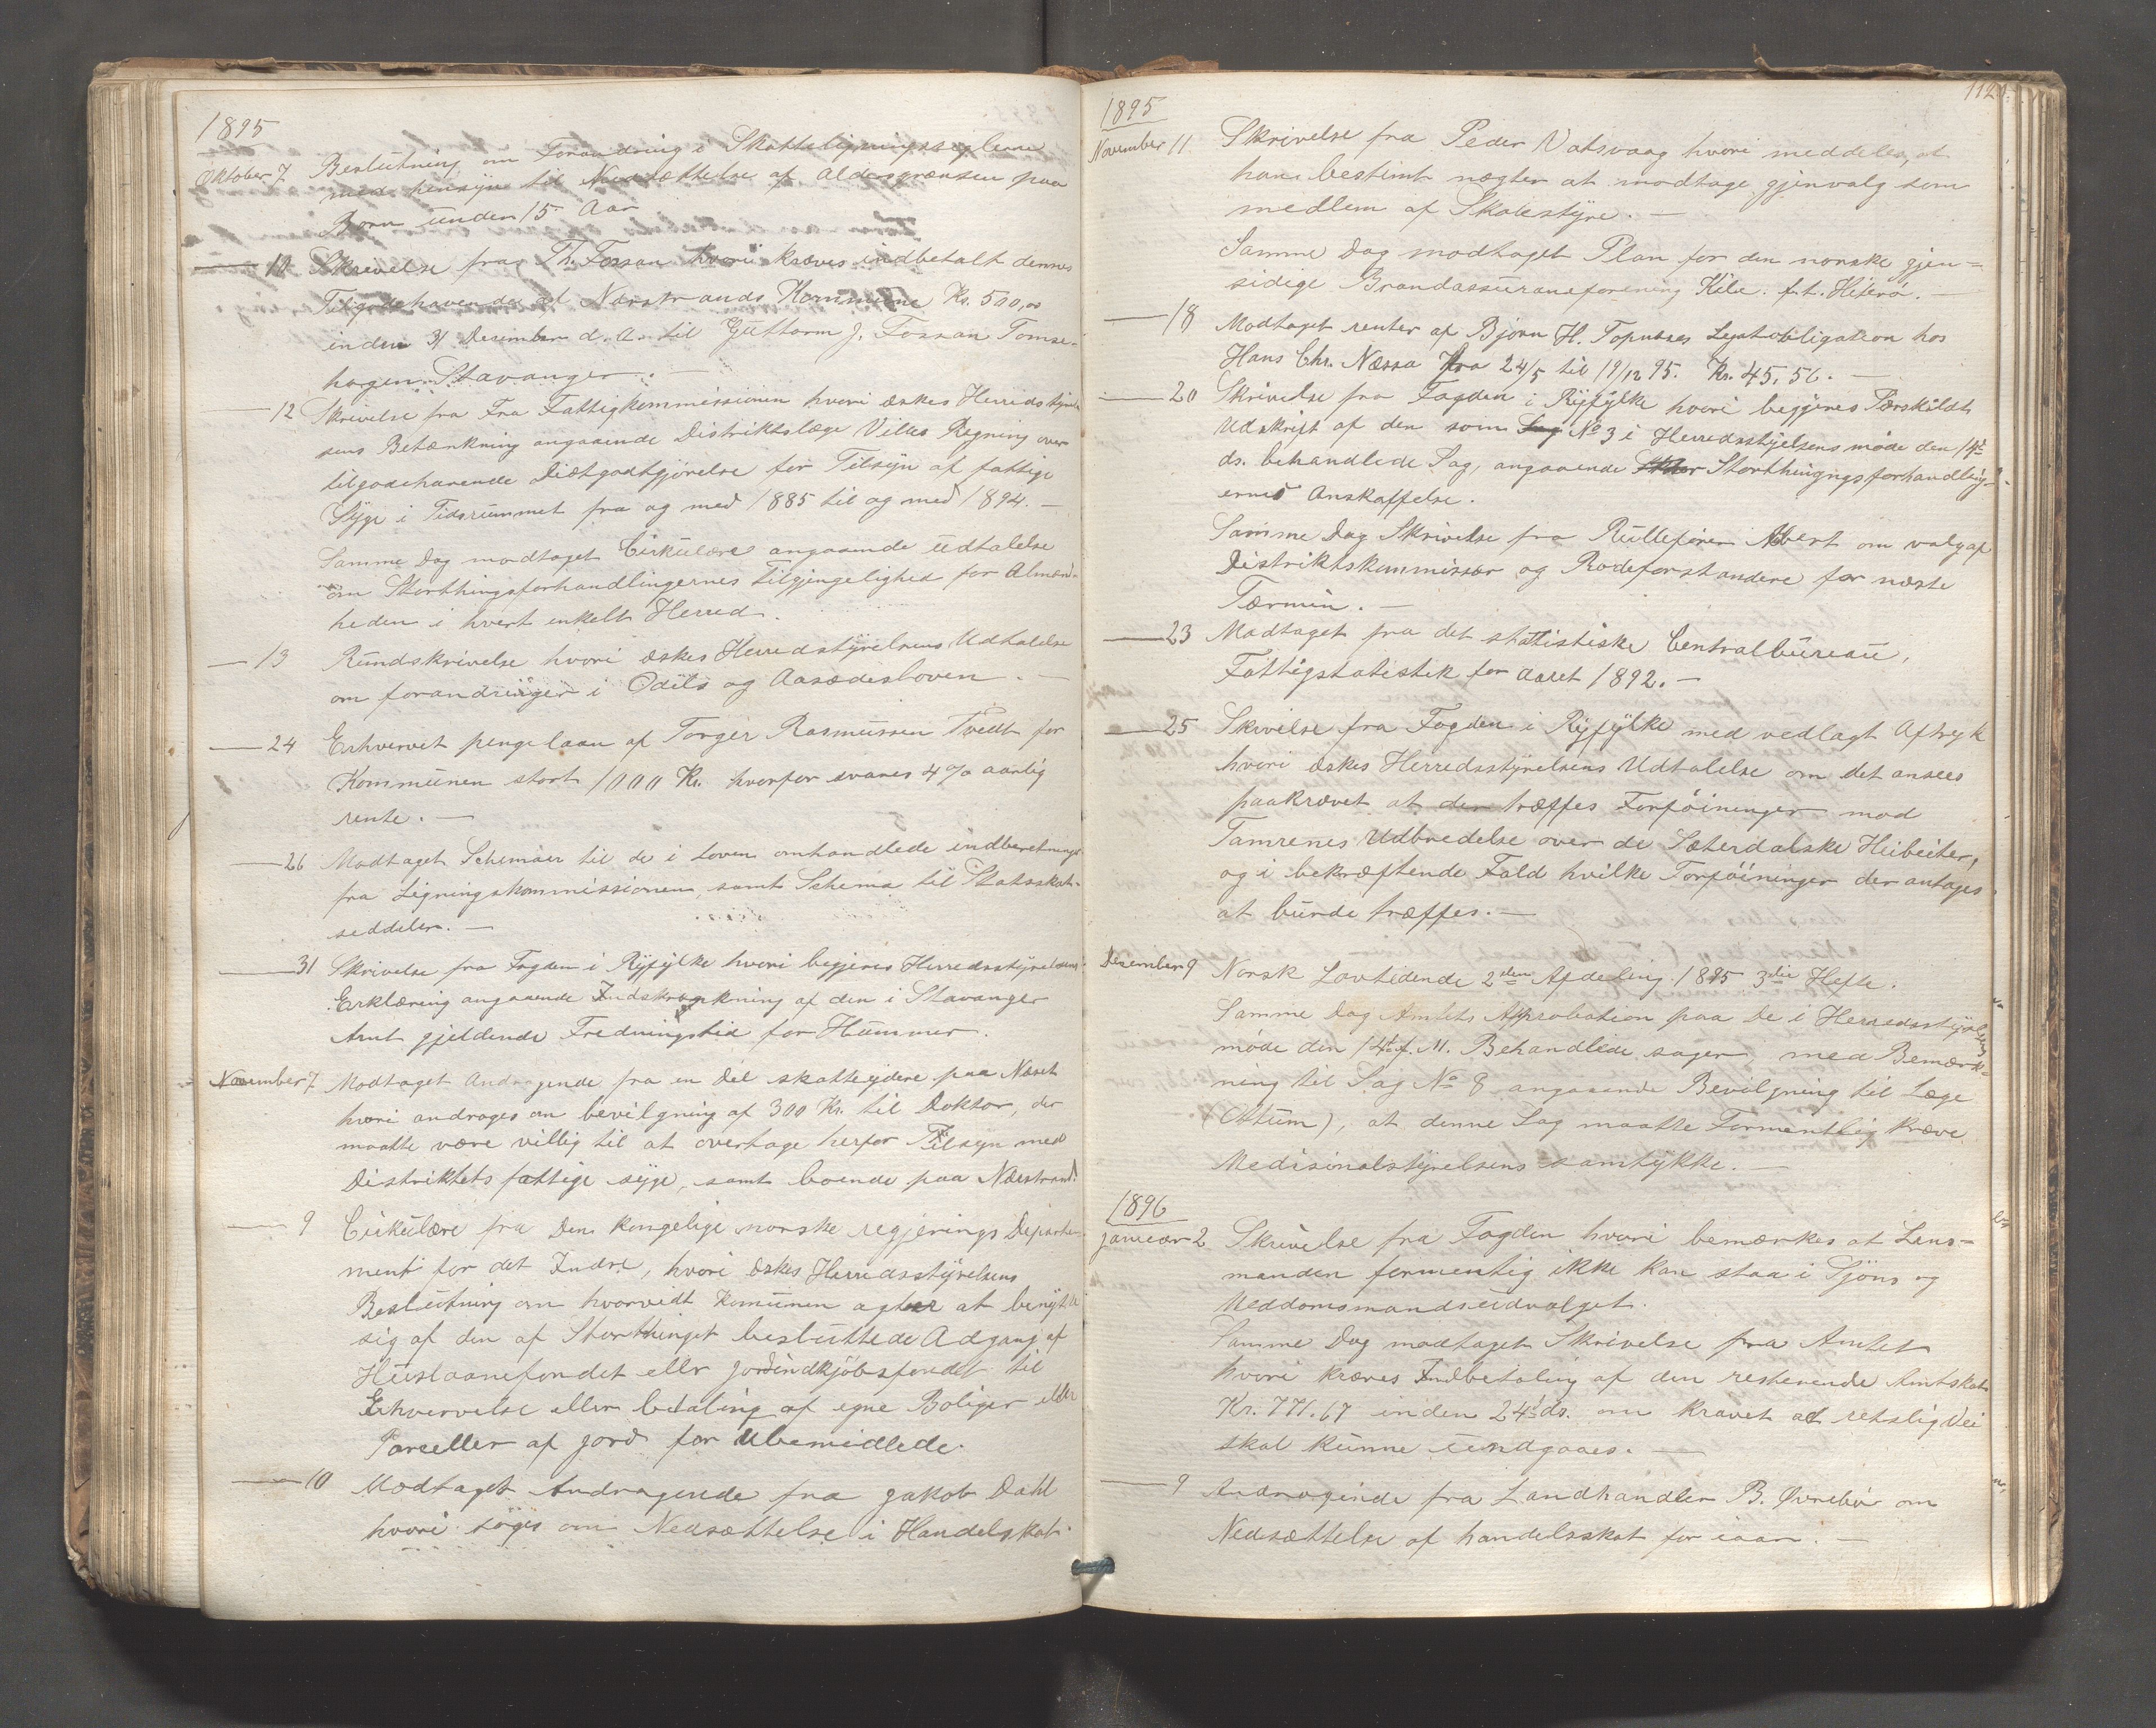 1895
Oktober 7 Beslutning om Forandring i Skatteligningsreglerne
med hensyn til Nedsættelse af Aldersgrænsen paa
Børn under 15 Aar
— 10 Skrivelse fra Th. Fossan hvori kræves indbetalt dennes
Tilgodehavende af Nærstrands Kommune Kr. 500,00
inden 31 December d. A. til Guttorm J. Fossan Tomse-
hagen Stavanger. —
— 12 Skrivelse fra Fra Fattigkommissionen hvori æskes Herredsstyrel
sens Betænkning angaaende Distriktslæge Villes Regning over
tilgodehavende Diætgodtgjørelse for Tilsyn af fattige
Syge i Tidsrummet fra og med 1885 til og med 1894. —
Samme Dag modtaget Cirkulære angaaende udtalelse
om Storthingsforhandlingernes tilgjengelighed for Almen-
heden i hvert enkelt Herred.
— 13 Rundskrivelse hvori æskes Herredsstyrelsens Udtalelse
om forandringer i Odels og Aasædesloven. —
— 24 Erhvervet pengelaan af Torger Rasmussen Tvedt for
Kommunen stort 1000 Kr. hvorfor svares 4% aarlig
rente. —
— 26 Modtaget Schemaer til de i Loven omhandlede indberetninge
fra Ligningskommissionen, samt Schema til Statsskat-
seddeler. —
— 31 Skrivelse fra Fogden i Ryfylke hvori begjeres Herredsstyrelsens
Erklæring angaaende Indskrænkning af den i Stavanger
Amt gjeldende Fredningstid for Hummer.
November 7 Modtaget Andragende fra en del skatteydere paa Næset
hvori andrages om bevilgning af 300 Kr. til Doktor, der
maatte være villig til at overtage herfor Tilsyn med
Distriktets fattige syge, samt boende paa Nærstrand.
— 9 Cirkulære fra Den kongelige norske regjerings Departe-
ment for det Indre, hvori æskes Herredsstyrelsens
Beslutning om hvorvidt Komunen agter at benytte
sig af den af Storthinget besluttede Adgang af
Huslaanefondet eller jordindkjøbsfondet til
Erhvervelse eller betaling af egne Boliger eller
Parseller af jord for Ubemidlede.
— 10 Modtaget Andragende fra Jakob Dahl
hvori søges om Nedsættelse i Handelskat.
112
1895
November 11 Skrivelse fra Peder Vatsvaag hvori meddeles, at
han bestimt nægter at modtage gjenvalg som
medlem af Skolestyre. —
Samme Dag modtaget Plan for den norske gjen=
sidige Brandassuranceforening Kile. f.t. Hiterø. —
— 18 Modtaget renter af Bjørn H. Topnæses Legatobligation hos
Hans Chr. Næssa fra 24/5 til 19/12 95. Kr. 45,56. —
— 20 Skrivelse fra Fogden i Ryfylke hvori begjeres Særskildt
Udskrift af den som Sag No 3 i Herredsstyrelsens møde den 14de
ds. behandlede Sag, angaaende Storthingngsforhandling-
ernes Anskaffelse.
Samme Dag Skrivelse fra Rullefører Abert om valg af
Distriktskommissær og Rodeforstandere for næste
Termin. —
— 23 Modtaget fra det stattistiske Centralbureau,
Fattigstatistik for Aaret 1892. —
— 25 Skrivelse fra Fogden i Ryfylke med vedlagt Aftryk
hvori æskes Herredsstyrelsens Udtalelse om det ansees
paakrævet at der træffes Forføininger mod
Tamrenes Udbredelse over de Sæterdalske Heibeiter,
og i bekræftende Fald hvilke Forføininger der antages
at burde træffes. —
Desember 9 Norsk Lovtidende 2den Afdeling 1895 3die Hefte.
Samme Dag Amtets Approbation paa de i Herredsstyrelsens
møde den 14de f. M. Behandlede sager, med Bemærk=
ning til Sag No 8 angaaende Bevilgning til Læge
(Ottum), at denne Sag maatte Formentlig kræve
Medisinalstyrelsens samtykke. —
1896
Januar 2 Skrivelse fra Fogden hvori bemærkes at Lens-
manden formentlig ikke kan staa i Sjøns og
Meddomsmandsudvalget.
Samme Dag modtaget Skrivelse fra Amtet
hvori kræves Indbetaling af den resterende Amtskat
Kr. 771.67 inden 24de ds. om kravet ad retslig Vei
skal kunne undgaaes. —
— 9 Andragende fra Landhandler B. Øvrebø om
Nedsættelse af handelsskat for iaar. —